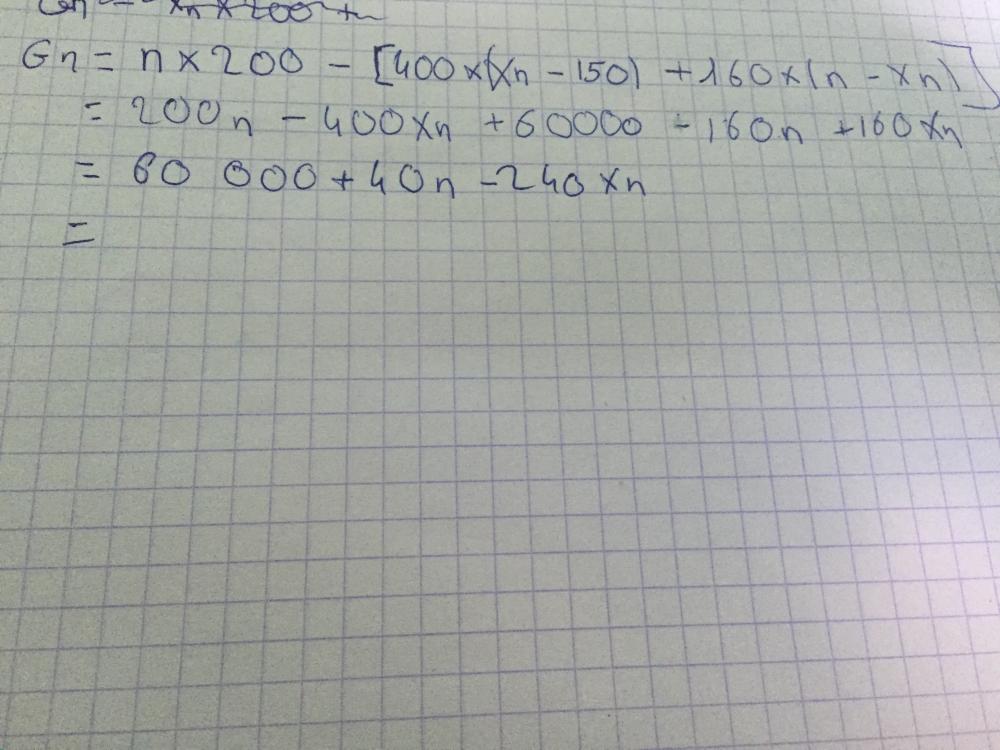 Gn = n × 200 - [400 × (Xn - 150) + 160 × (n - Xn)]
= 200n - 400Xn + 60000 - 160n + 160Xn
= 60 000 + 40n - 240Xn
=